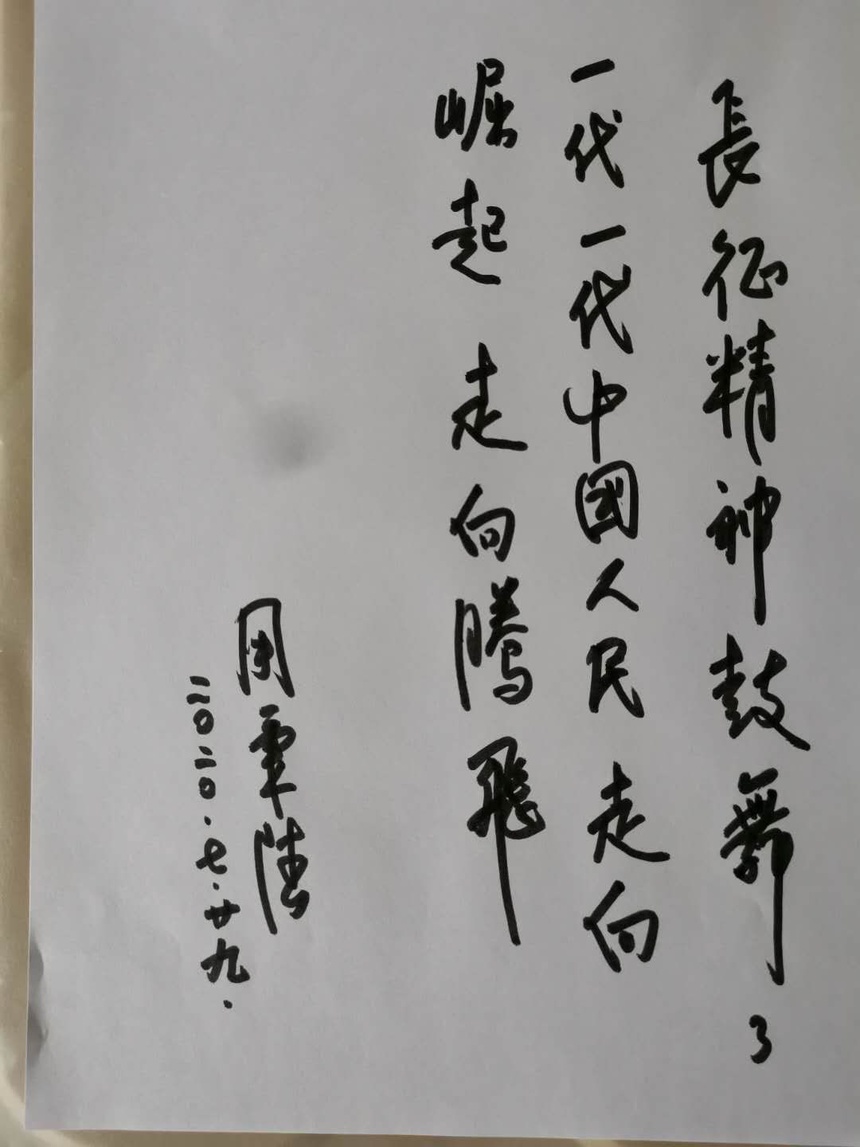 長征精神鼓舞了
一代一代中國人民走向
崛起 走向騰飛
周
二〇二〇.七.廿九.